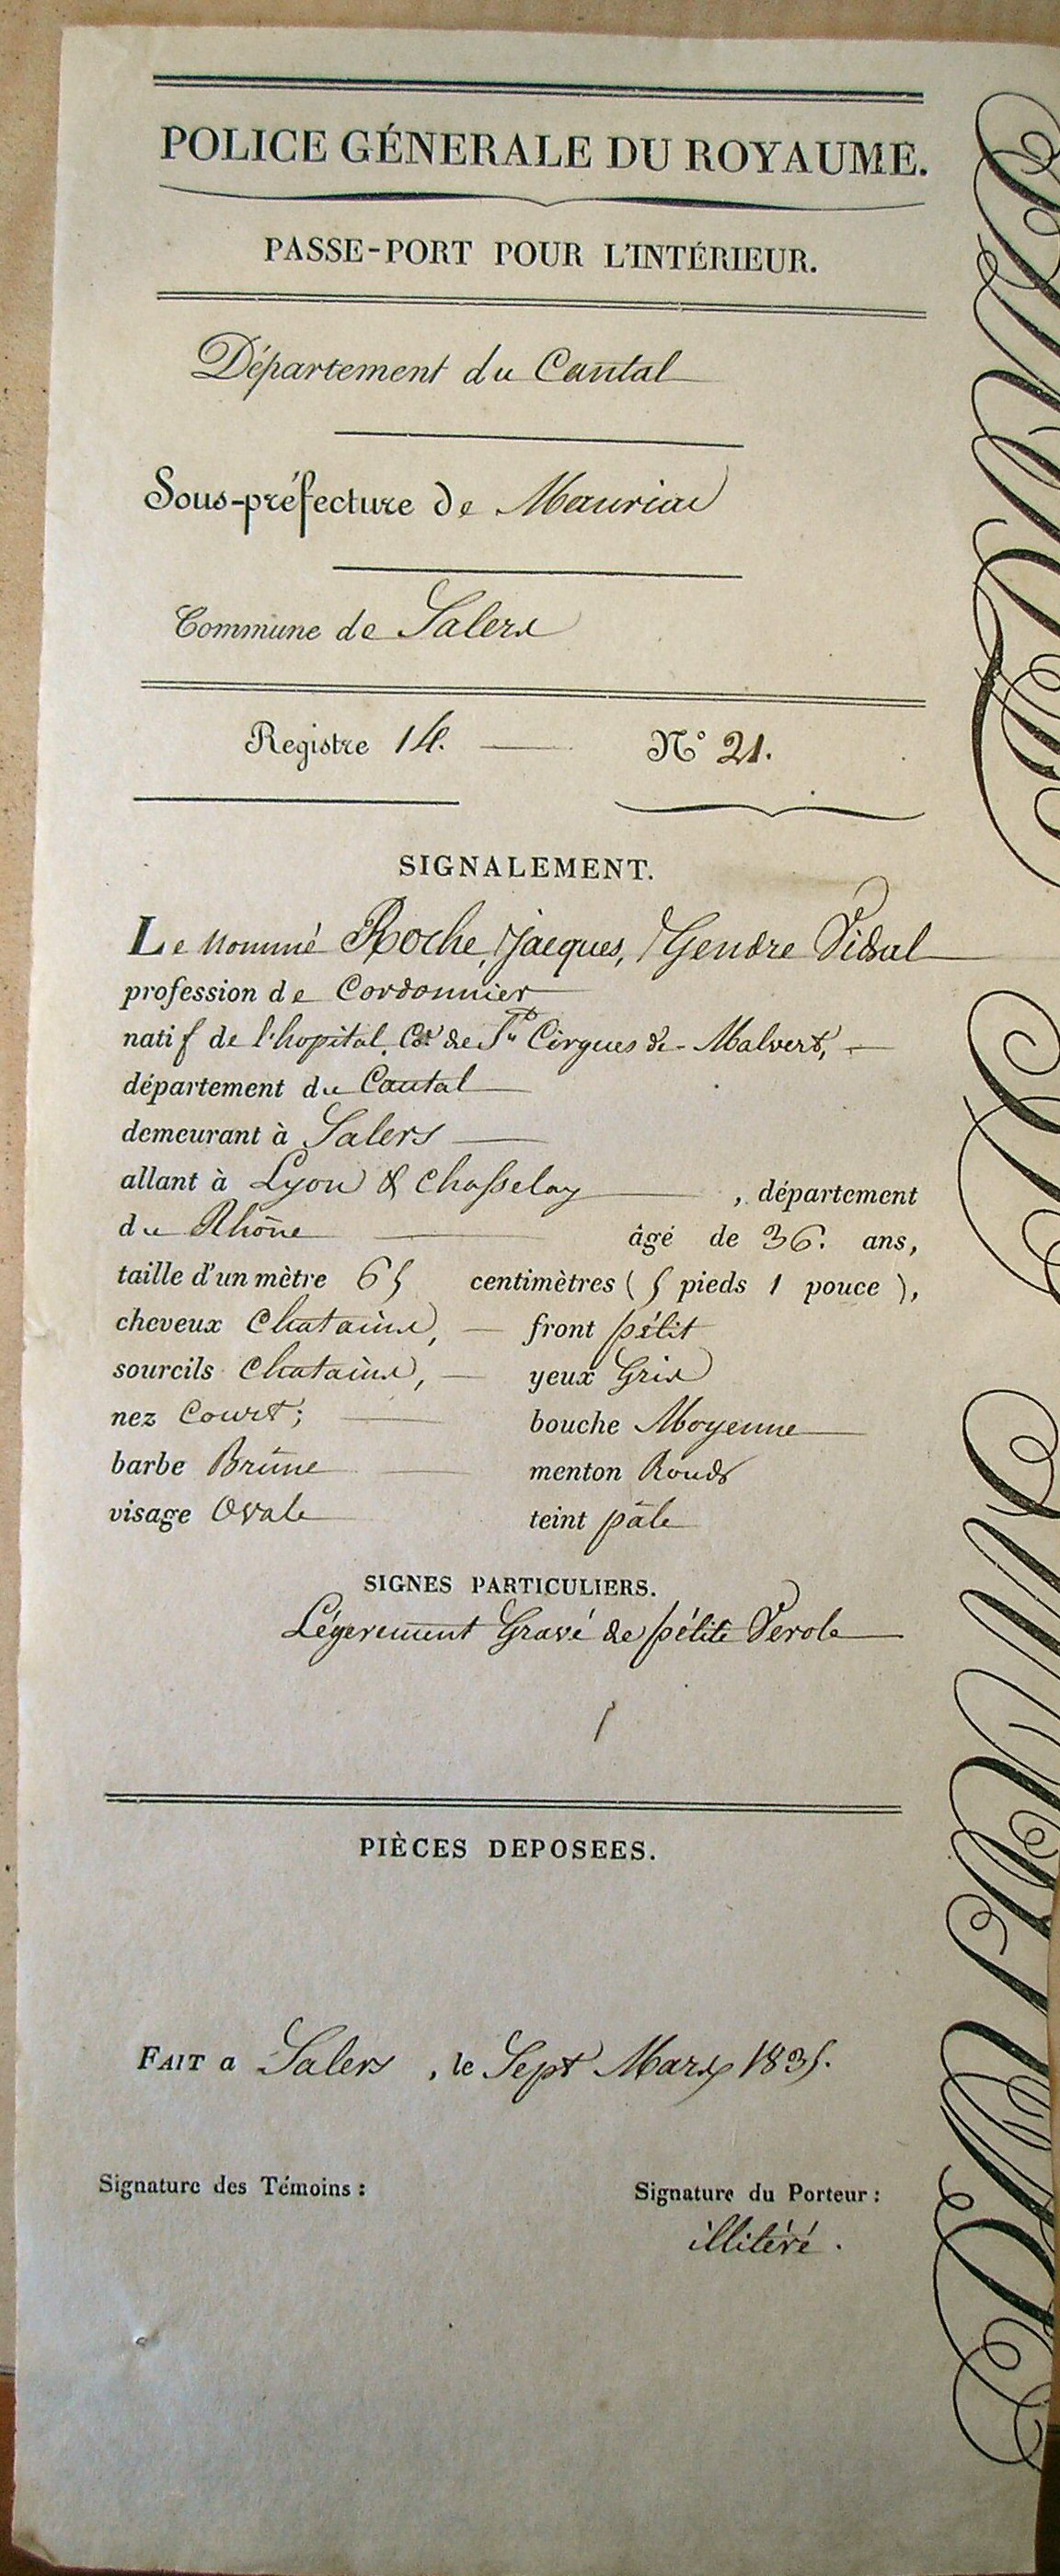 POLICE GÉNERALE DU ROYAUME.
PASSE-PORT POUR L'INTÉRIEUR.
Département du Cantal
Sous-préfecture de Mauriac
Commune de Salers
Registre 14. N° 21.
SIGNALEMENT.
Le nommé Roche, Jacques, Gendre Vidal
profession de Cordonnier
natif de l'hopital, Cne de St Cirgues de Malvert,
département du Cantal
demeurant à Salers
allant à Lyon & Chasselay, département
du Rhône âgé de 36. ans,
taille d'un mètre 65 centimètres (5 pieds 1 pouce),
cheveux Chatains, front pétit
sourcils Chatains, yeux Gris
nez Court; bouche Moyenne
barbe Brune menton Rond
visage Ovale teint pâle
SIGNES PARTICULIERS.
Légerement Gravé de pétite Verole
PIÈCES DEPOSEES.
FAIT a Salers, le Sept Mars 1835.
Signature des Témoins : Signature du Porteur :
illitéré.